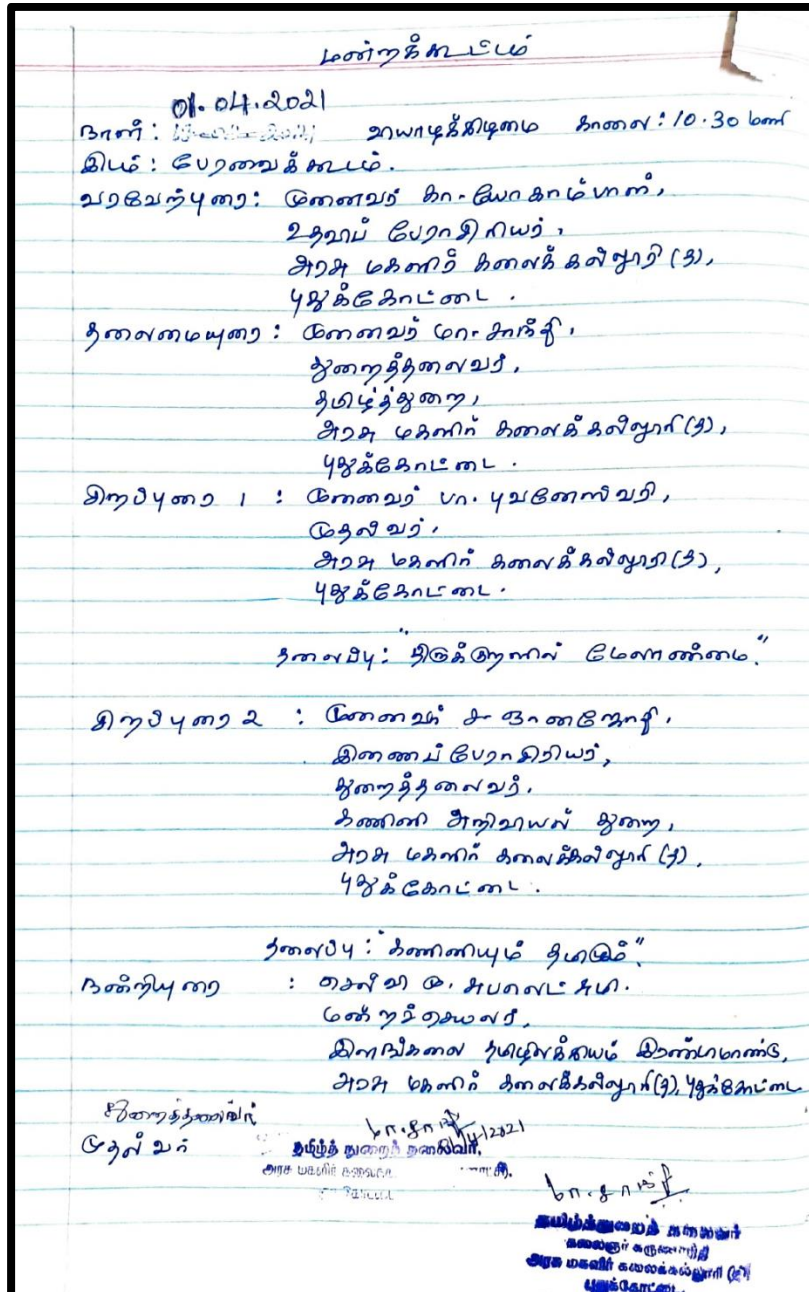 மன்றக்கூட்டம்
01.04.2021
நாள்: வியாழக்கிழமை காலை: 10.30 மணி
இடம்: பேரவைக்கூடம்.
வரவேற்புரை: முனைவர் கா. யோகாம்பாள்,
உதவிப் பேராசிரியர்,
அரசு மகளிர் கலைக் கல்லூரி (த),
புதுக்கோட்டை.
தலைமையுரை: முனைவர் மா. சாந்தி,
துறைத்தலைவர்,
தமிழ்த்துறை,
அரசு மகளிர் கலைக் கல்லூரி (த),
புதுக்கோட்டை.
சிறப்புரை 1 : முனைவர் பா. புவனேஸ்வரி,
முதல்வர்,
அரசு மகளிர் கலைக்கல்லூரி (த),
புதுக்கோட்டை.
தலைப்பு: "திருக்குறளில் மேலாண்மை."
சிறப்புரை 2 : முனைவர் ச. ஞானஜோதி,
இணைப் பேராசிரியர்,
துறைத்தலைவர்,
கணினி அறிவியல் துறை,
அரசு மகளிர் கலைக்கல்லூரி (த),
புதுக்கோட்டை.
தலைப்பு: "கணினியும் தமிழும்."
நன்றியுரை : செல்வி மு. சுபலெட்சுமி.
மன்றச் செயலர்,
இளங்கலை தமிழிலக்கியம் இரண்டாமாண்டு,
அரசு மகளிர் கலைக்கல்லூரி (த), புதுக்கோட்டை
துறைத்தலைவர்
முதல்வர்
மா. சாந்தி
தமிழ்த் துறைத் தலைவர்,
அரசு மகளிர்
மா. சாந்தி
தமிழ்த்துறைத் தலைவர்
கலைஞர் கருணாநிதி
அரசு மகளிர் கலைக்கல்லூரி (த)
புதுக்கோட்டை.